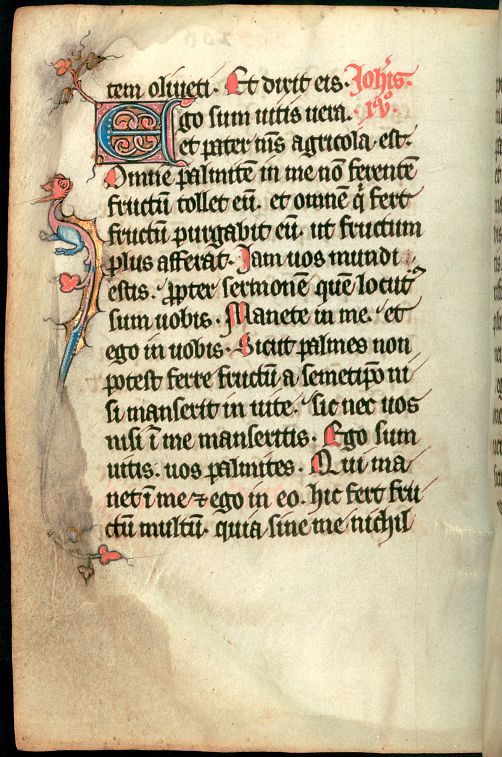 tem oliueti. Et dixit eis. Joh̃is.
Ego sum uitis uera. xv°.
et pater m̃s agricola est.
Omnẽ palmitẽ in me nõ ferentẽ
fructũ tollet eũ. et omnẽ q̃ fert
fructũ purgabit eũ. ut fructum
plus afferat. Jam uos mundi
estis. ꝓpter sermonẽ quẽ locutꝰ
sum uobis. Manete in me. et
ego in uobis. Sicut palmes non
potest ferre fructũ a semetip̃o ni
si manserit in uite. sic nec uos
nisi ĩ me manseritis. Ego sum
uitis. uos palmites. Qui ma
net ĩ me ⁊ ego in eo. hic fert fru
ctũ multũ. quia sine me nichil